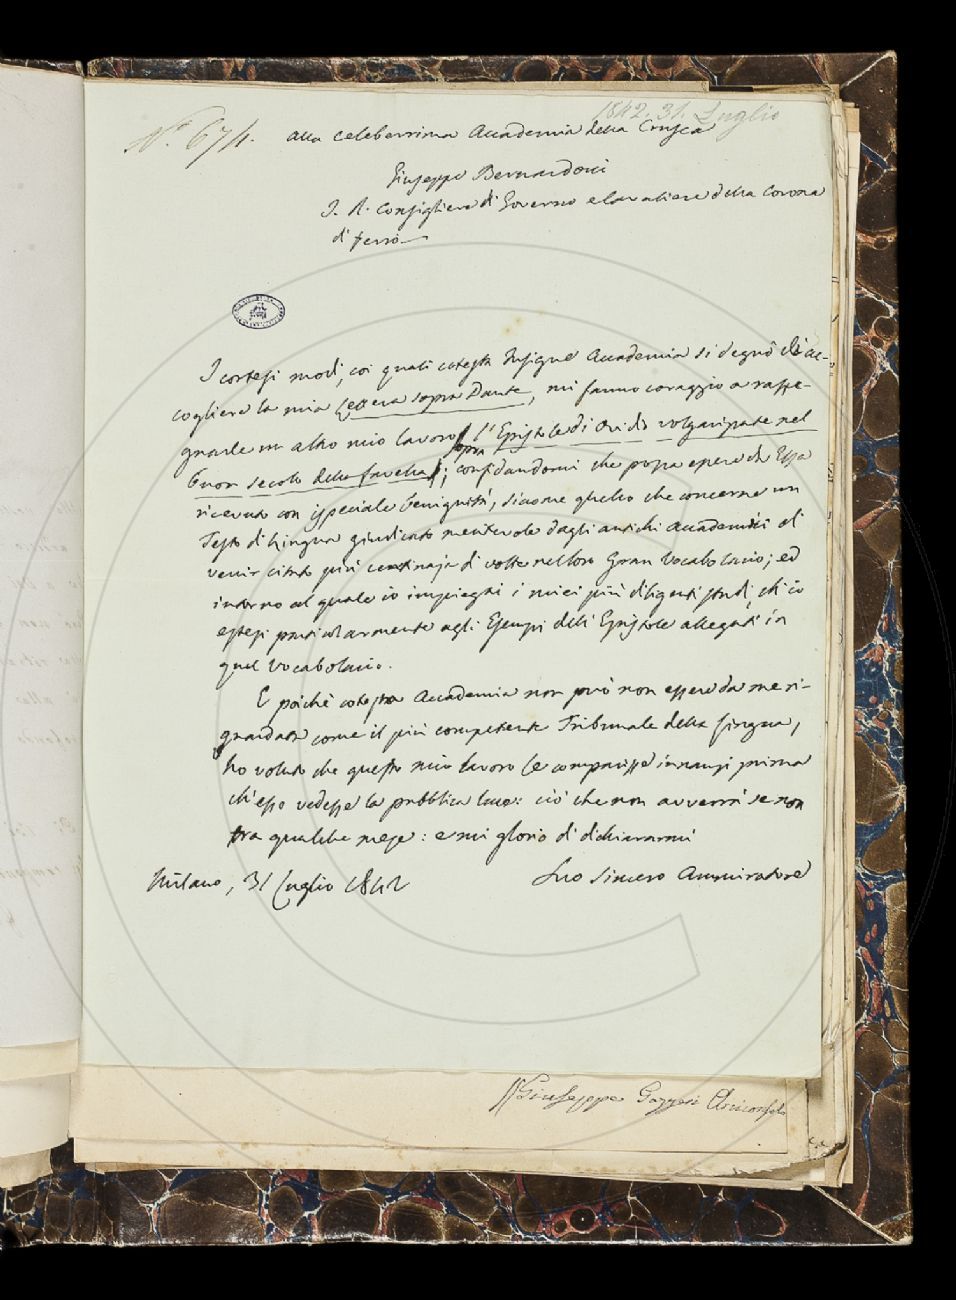 1842. 31. Luglio
N.° 674.
Alla celeberrima Accademia della Crusca
Giuseppe Bernardoni
I. R. Consigliere di Governo e Cavaliere della Corona
di ferro
I cortesi modi, coi quali cotesta Insigne Accademia si degnò di ac-
cogliere la mia Lettera sopra Dante, mi fanno coraggio a rasse-
gnarle un altro mio lavoro sopra l'Epistole di Ovidio volgarizzate nel
buon secolo della favella, confidandomi che possa essere da Essa
ricevuto con ispeciale benignità, siccome quello che concerne un
Testo di Lingua giudicato meritevole dagli antichi Accademici di
venir citato più centinaja di volte nel loro Gran Vocabolario; ed
intorno al quale io impiegai i miei più diligenti studi, ch'io
estesi particolarmente agli Esempi delle Epistole allegati in
quel Vocabolario.
E poichè cotesta Accademia non può non essere da me ri-
guardata come il più competente Tribunale della Lingua,
ho voluto che questo mio lavoro le comparisse innanzi prima
ch'esso vedesse la pubblica luce: ciò che non avverrà se non
tra qualche mese: e mi glorio di dichiararmi
Milano, 31 Luglio 1842
Suo sincero Ammiratore
Giuseppe Gazzeri Arciconsolo